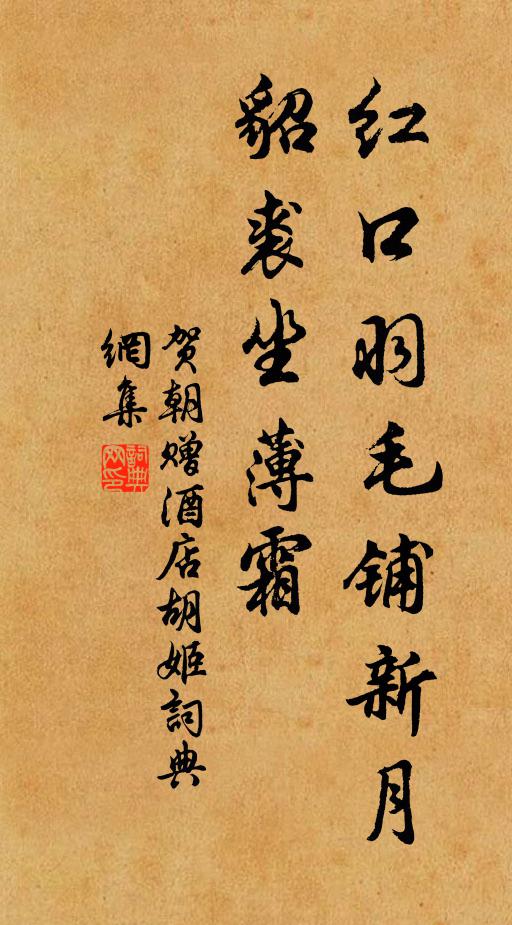 红口羽毛铺新月
貂裘坐薄霜
贺朝赠酒店胡姬詞典
網集
詞典
网印